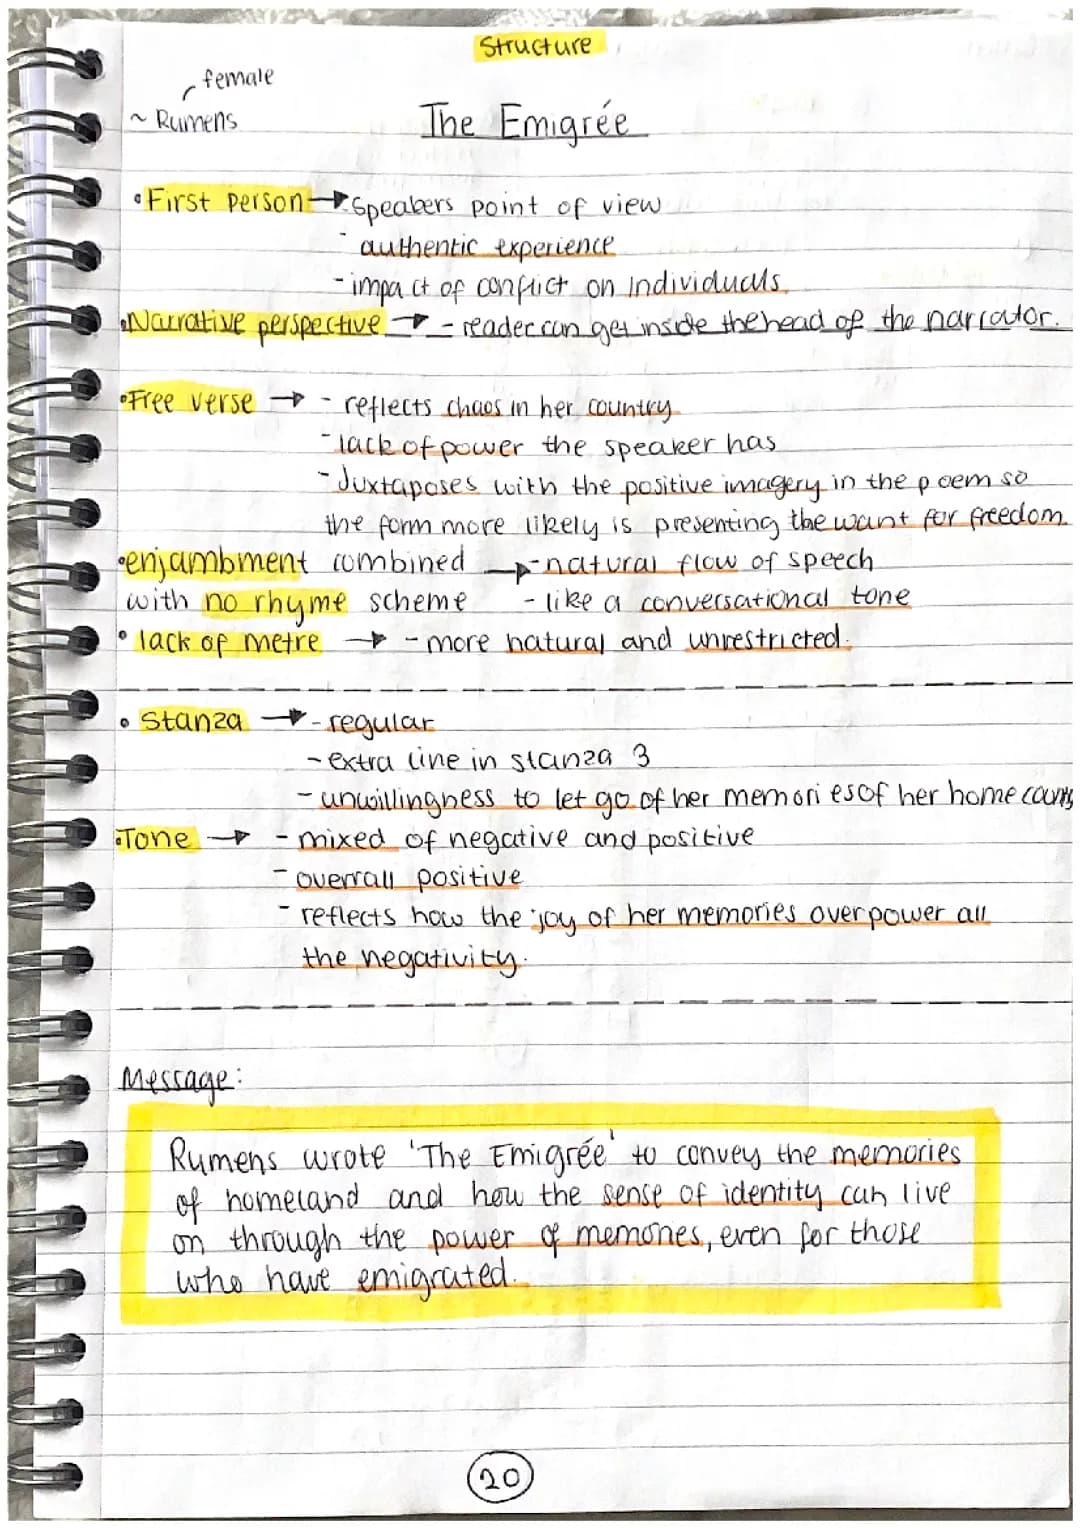 Structure
female
~ Rumens
The Emigrée
• First person → - Speakers point of view
- authentic experience
- impact of conflict on individuals.
• Narrative perspective → - reader can get inside the head of the narrator.
• Free verse → - reflects chaos in her country
- lack of power the speaker has
- Juxtaposes with the positive imagery in the poem so
the form more likely is presenting the want for freedom.
• enjambment combined → - natural flow of speech
with no rhyme scheme - like a conversational tone
• lack of metre → - more natural and unrestricted.
• Stanza → - regular
- extra line in stanza 3
- unwillingness to let go of her memories of her home
• Tone → - mixed of negative and positive
- overrall positive
- reflects how the joy of her memories overpower all
the negativity.
Message:
Rumens wrote 'The Emigrée' to convey the memories
of homeland and how the sense of identity can live
on through the power of memories, even for those
who have emigrated.
20